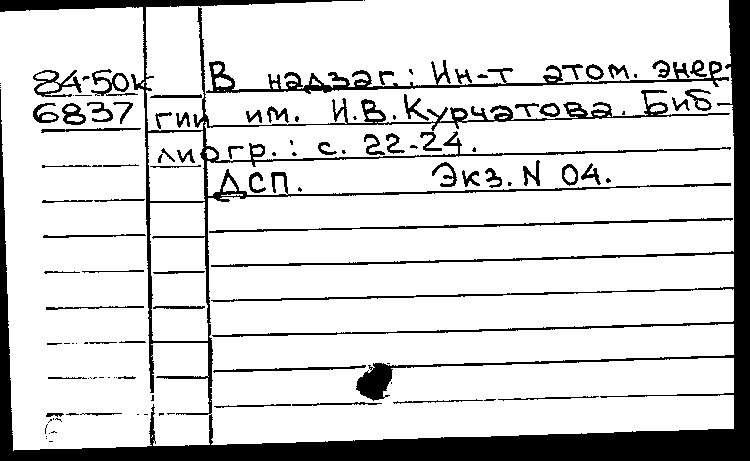 84-50к В надзаг.: Ин-т атом. энер-
6837 гии им. И.В.Курчатова. Биб-
лиогр.: с. 22-24.
ДСП. Экз. N 04.